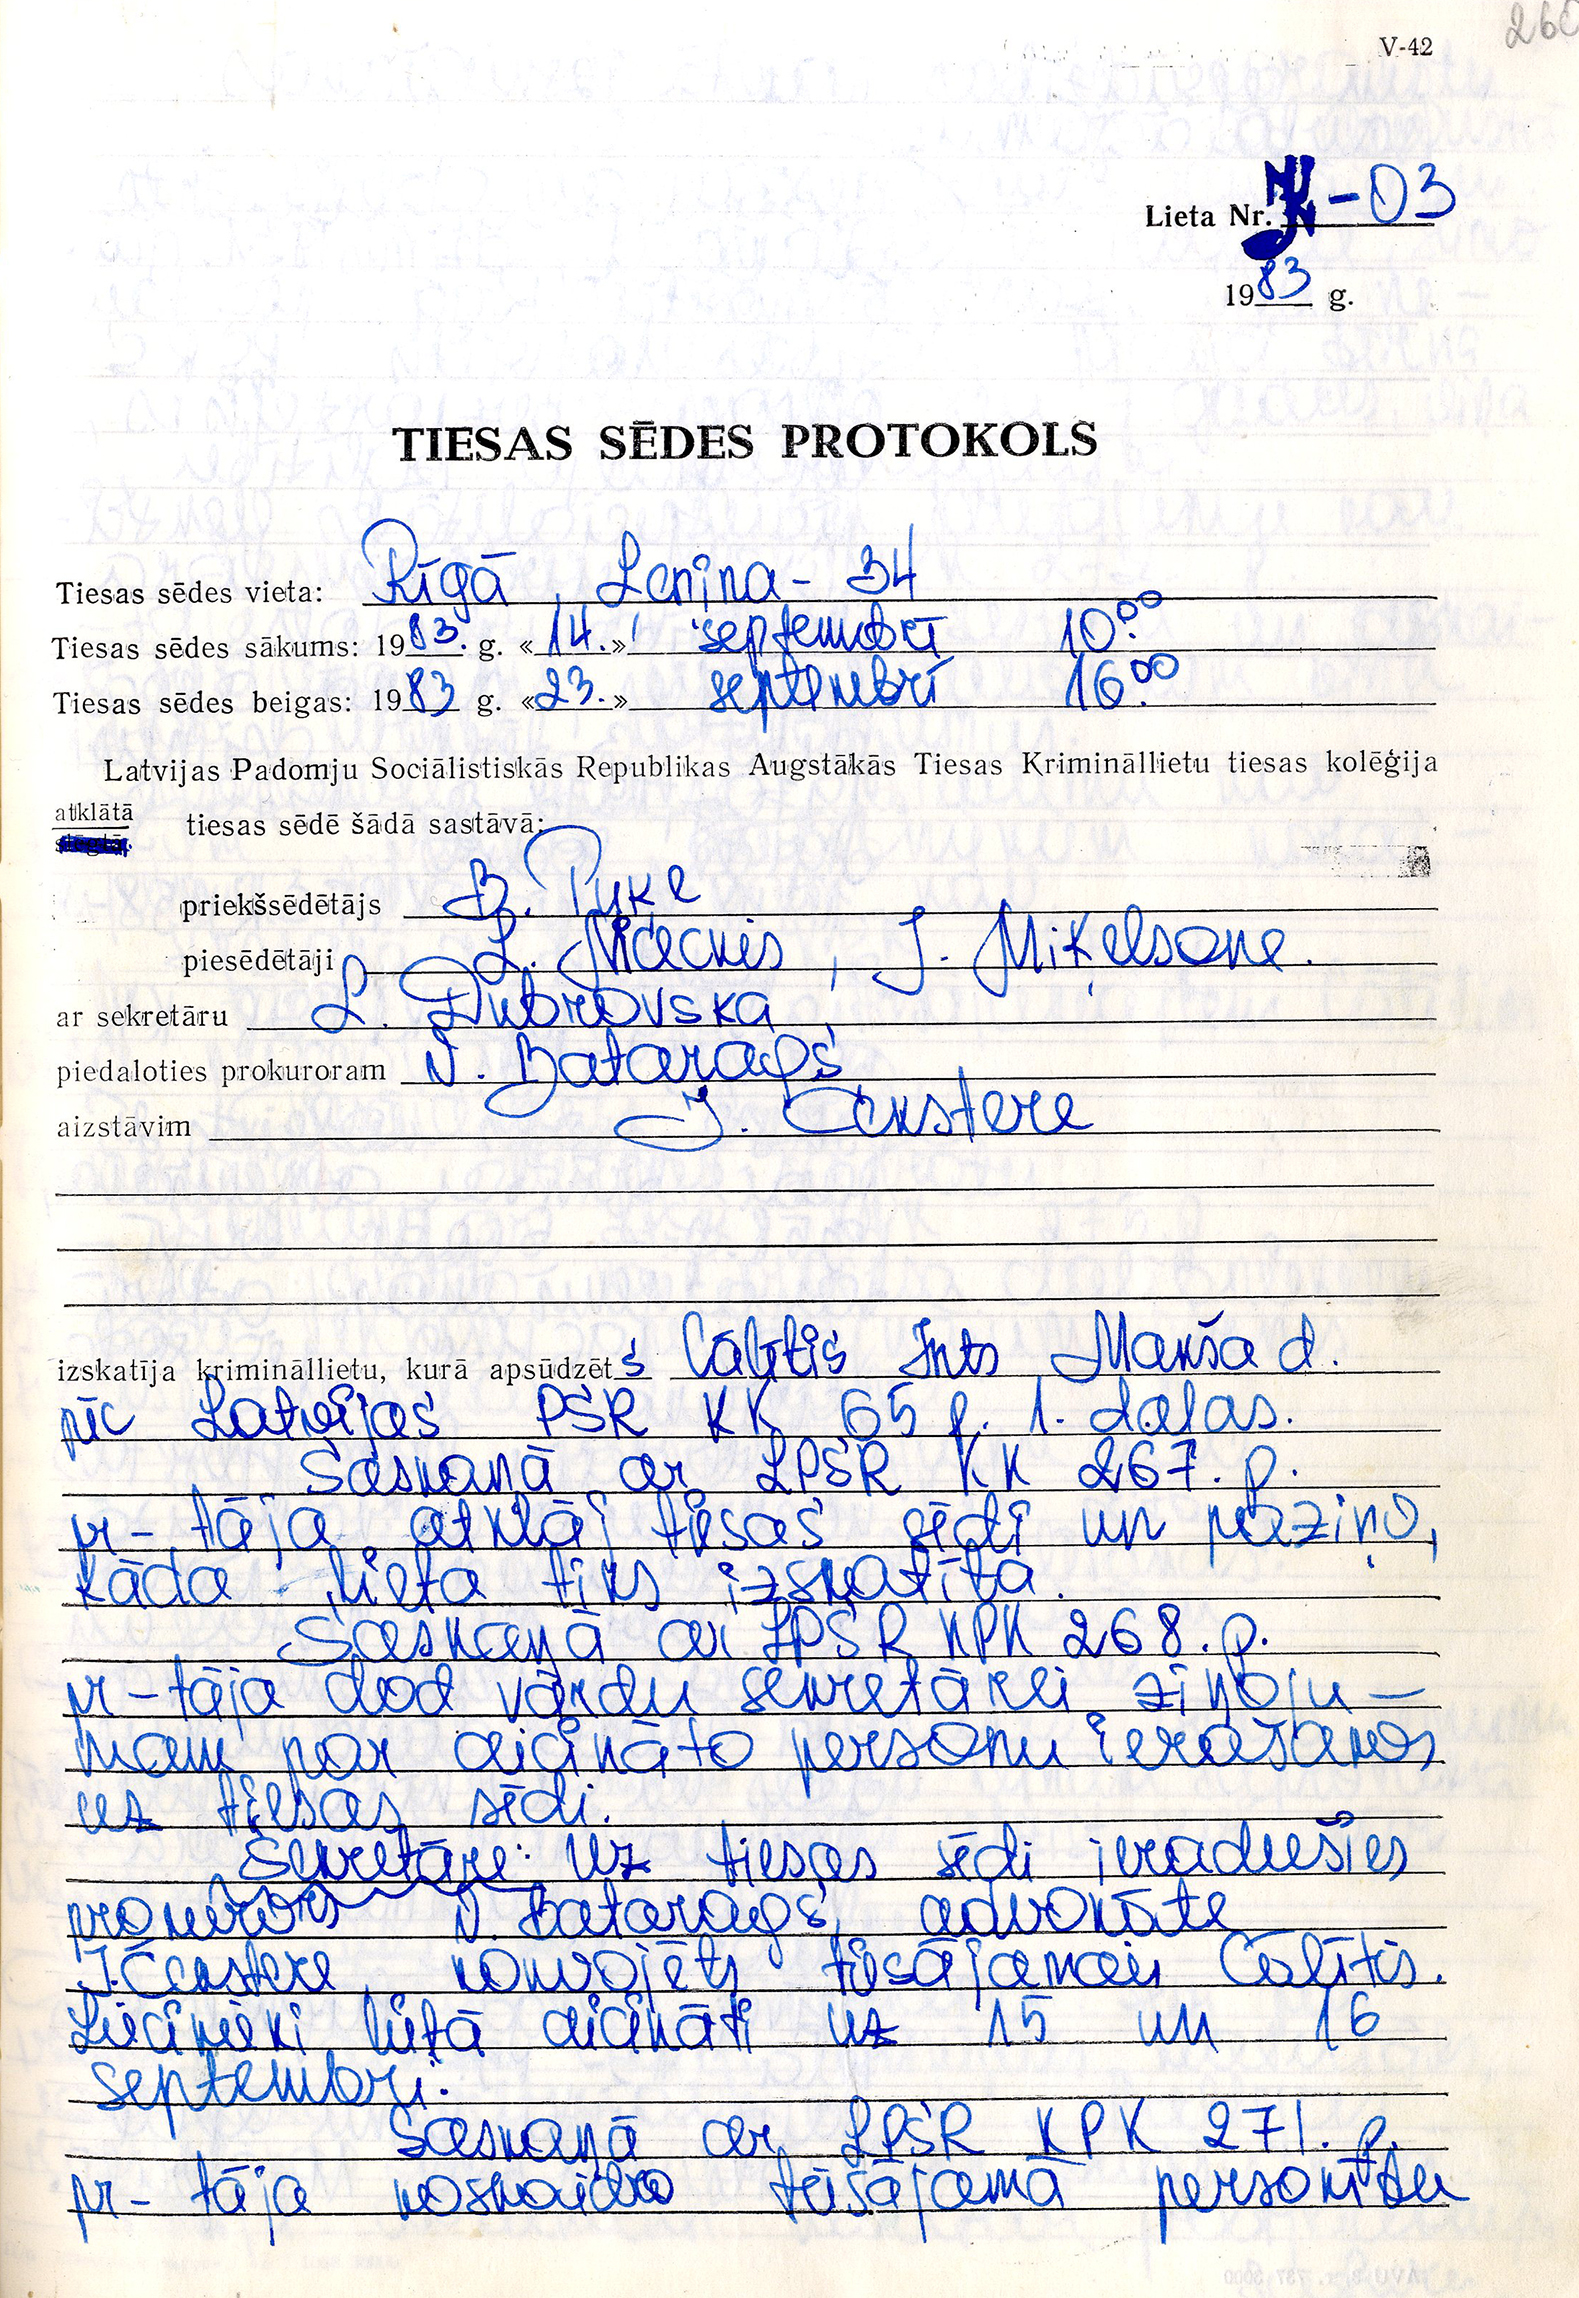 V-42
Lieta Nr. -03
1983 g.
TIESAS SĒDES PROTOKOLS
Tiesas sēdes vieta: Rīgā, Ļeņina - 34
Tiesas sēdes sākums: 1983. g. «14.» septembrī 10.00
Tiesas sēdes beigas: 1983 g. «23.» septembrī 16.00
Latvijas Padomju Sociālistiskās Republikas Augstākās Tiesas Krimināllietu tiesas kolēģija
atklātā
slēgtā
tiesas sēdē šādā sastāvā:
priekšsēdētājs B. Puķe
piesēdētāji L. , J. Miķelsone.
ar sekretāru L. Dubrovska,
piedaloties prokuroram V. Batarags
aizstāvim J. Čenstere
izskatīja krimināllietu, kurā apsūdzēts Cālītis Ints Makša d.
pēc Latvijas PSR KK 65 p. 1. daļas.
Saskaņā ar LPSR KK 267. p.
pr-tāja atklāj tiesas sēdi un paziņo,
kāda lieta tiks izskatīta.
Saskaņā ar LPSR KPK 268. p.
pr-tāja dod vārdu sekretārei ziņoju-
mam par aicināto personu ierašanos
uz tiesas sēdi.
Sekretāre: Uz tiesas sēdi ieradušies
prokurors V. Batarags, advokāte
J. Čenstere, konvojēts tiesājamais Cālītis.
Liecinieki lietā aicināti uz 15 un 16
septembri.
Saskaņā ar LPSR KPK 271. p.
pr-tāja noskaidro tiesājamā personību